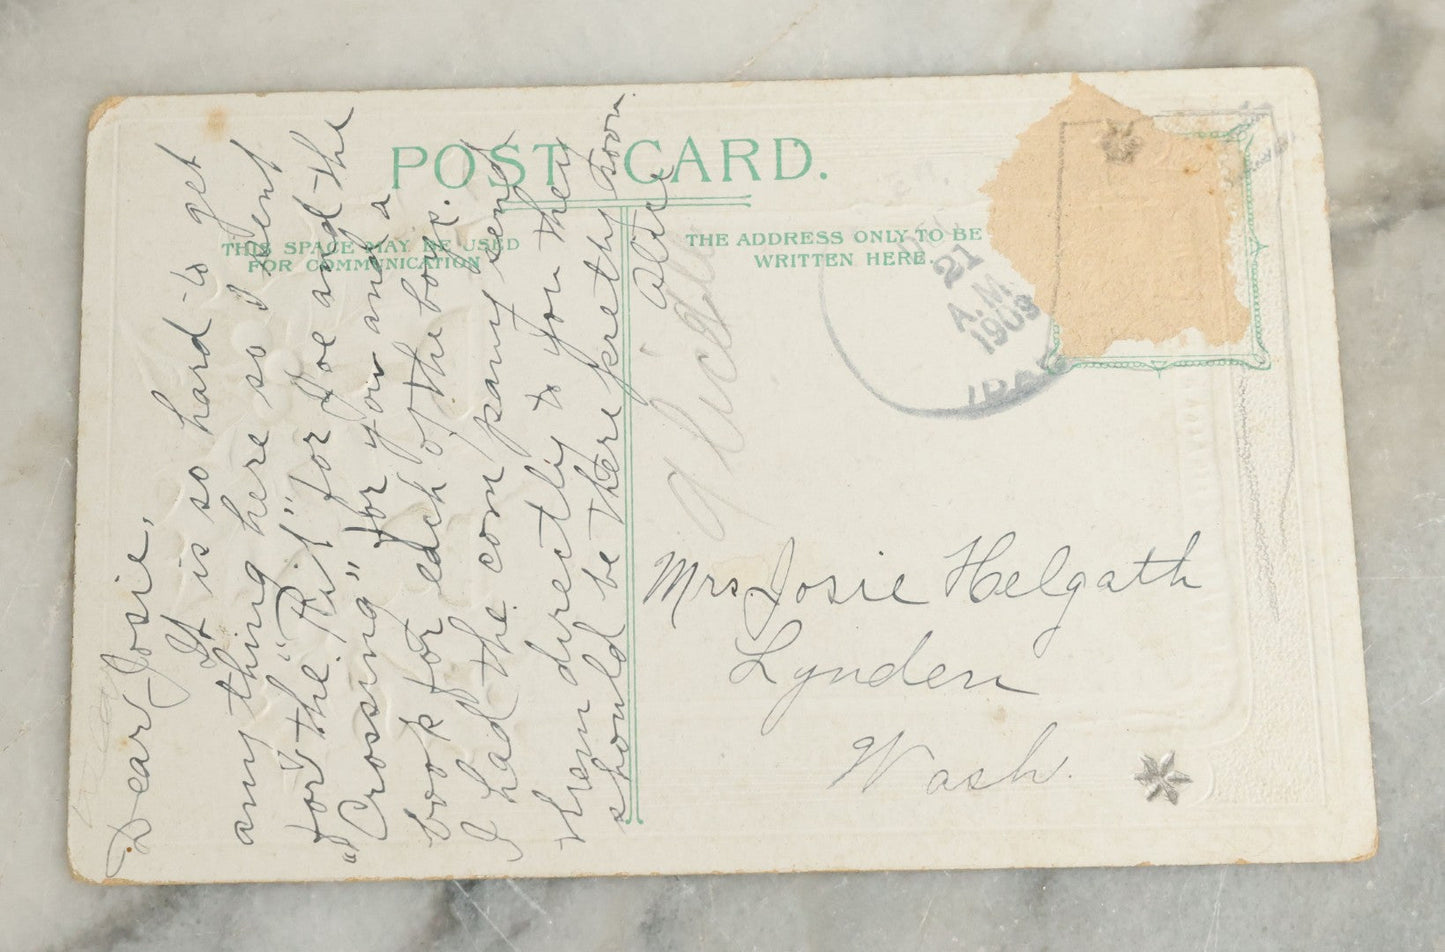 POST CARD.
THIS SPACE MAY BE USED
FOR COMMUNICATION
THE ADDRESS ONLY TO BE
WRITTEN HERE.
21
A.M.
1909
IDAHO
Dear Josie,
It is so hard to get
any thing here so I sent
for the "Rit" for Joe and the
"Crossing" for you and a
book for each of the boys.
I had the company send
them directly to you they
should be there pretty soon
Alice
Alice
Mrs Josie Helgath
Lynden
Wash.